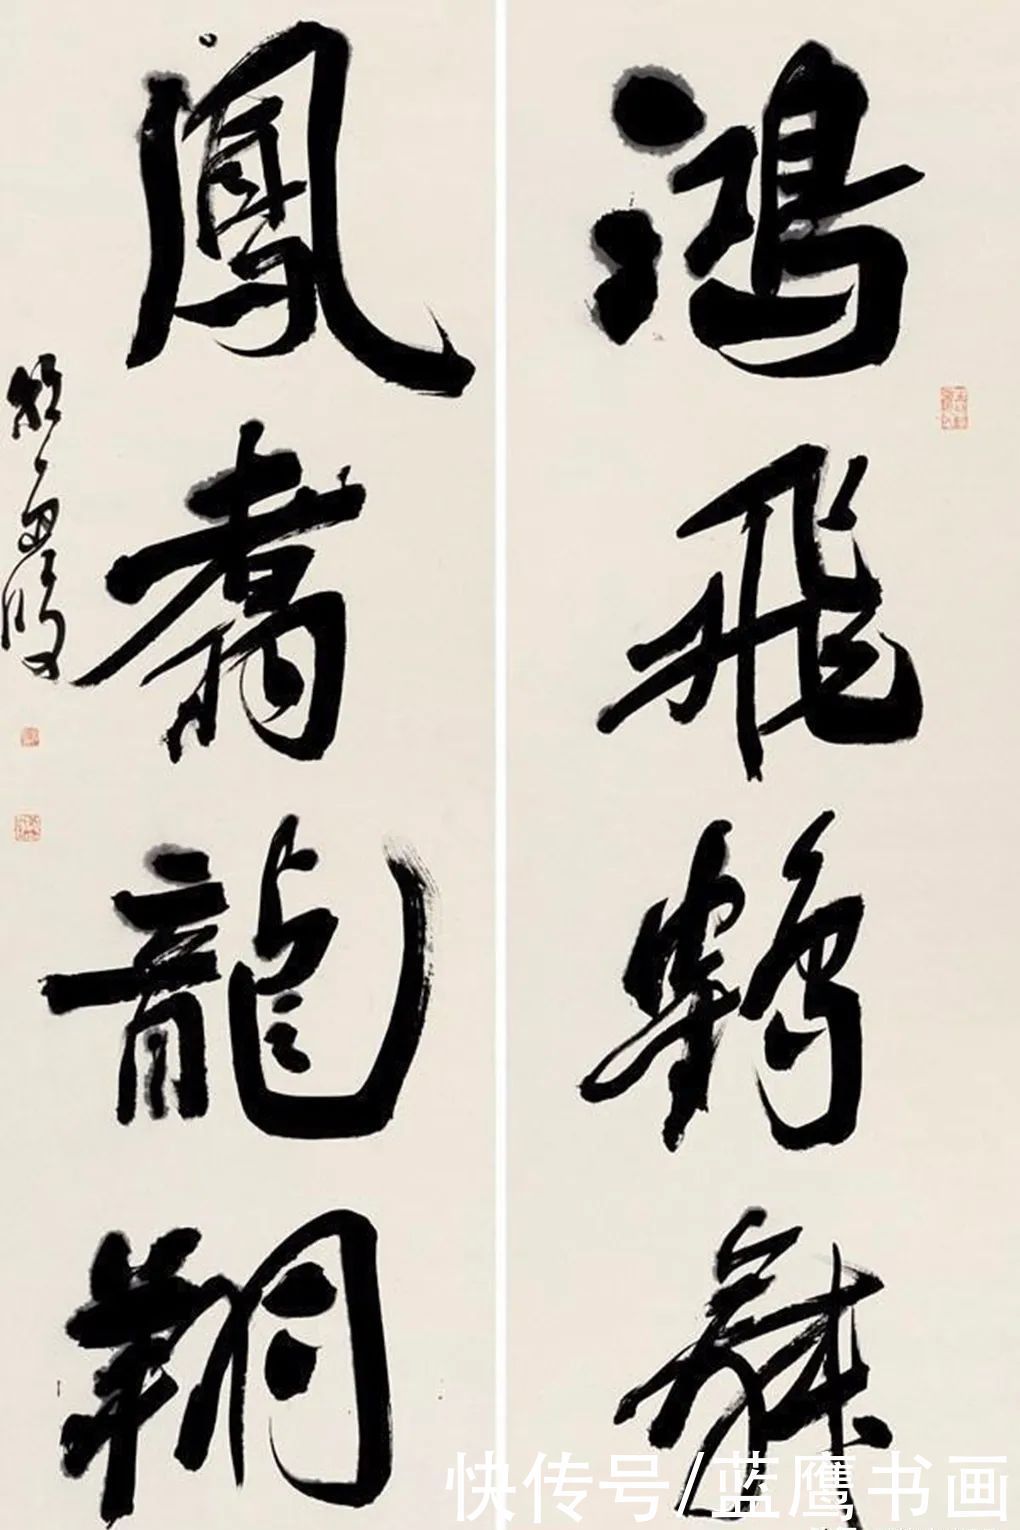 鴻飛鶴舞
鳳翥龍翔
快传号/蓝鹰书画